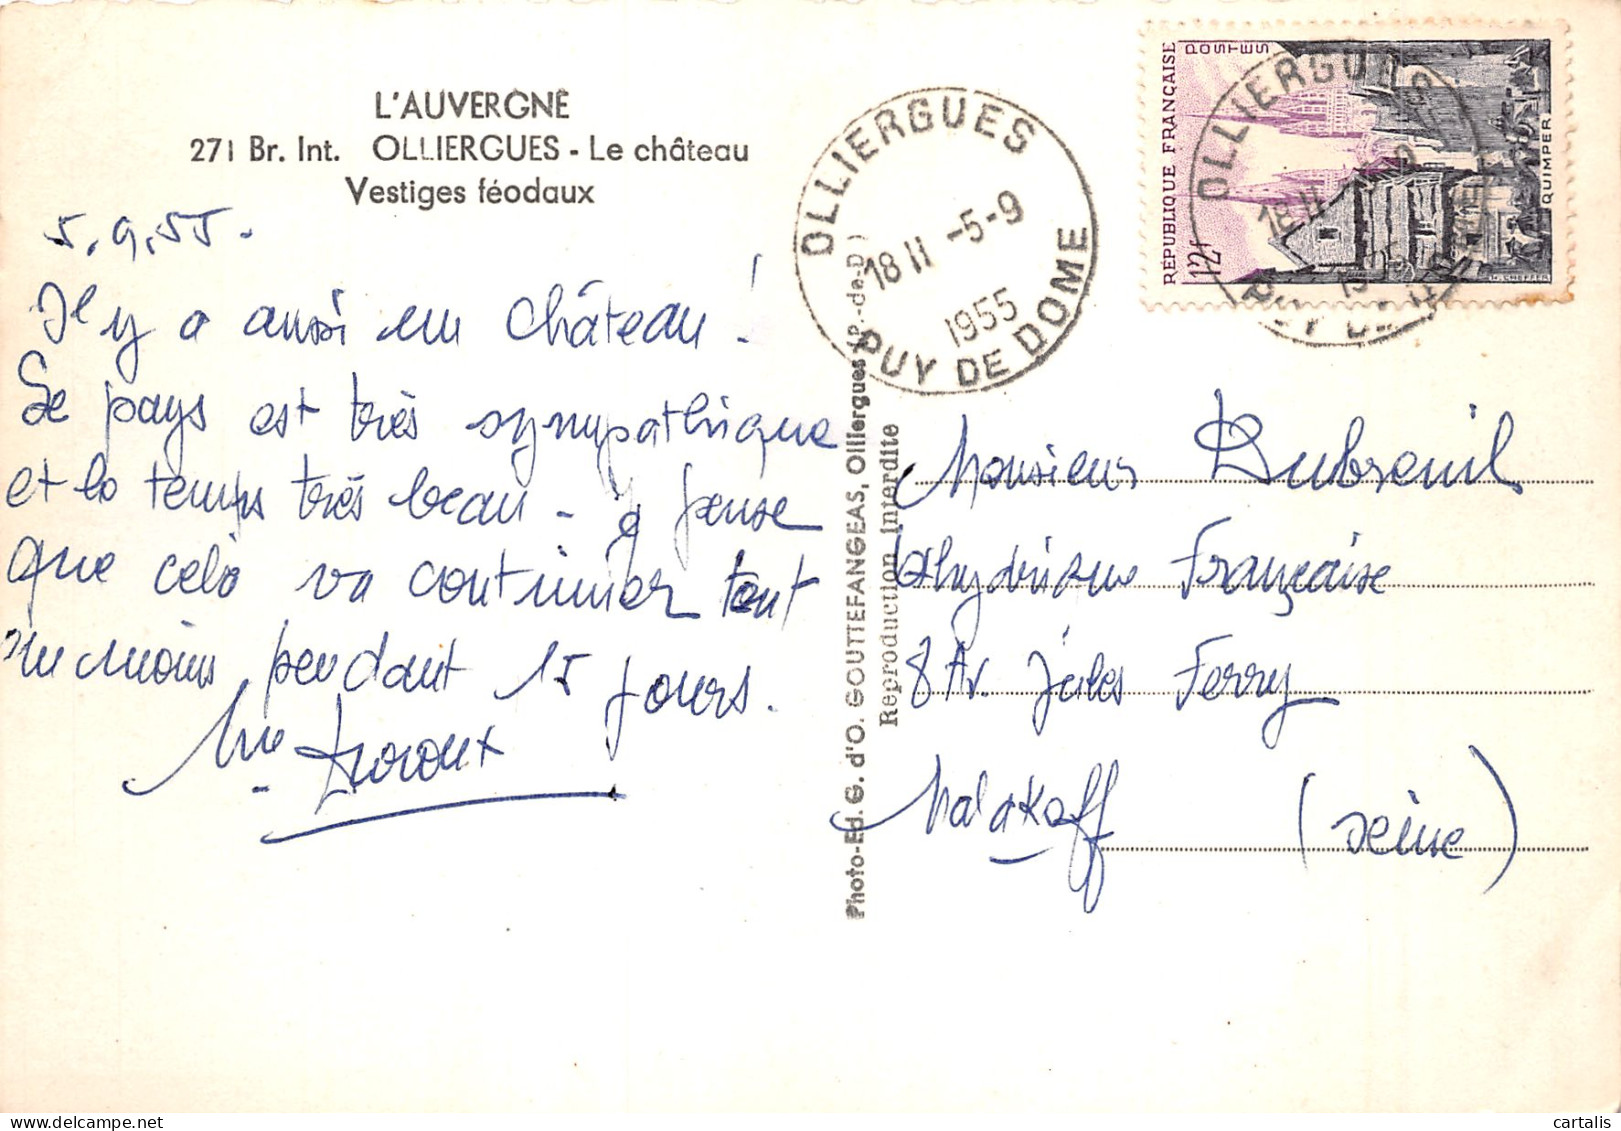 L'AUVERGNE
271 Br. Int. OLLIERGUES - Le château
Vestiges féodaux
5.9.55.
Il y a aussi un château !
Le pays est très sympathique
et le temps très beau - je pense
que cela va continuer tout
au moins pendant 15 jours.
OLLIERGUES
18 H -5-9
1955
PUY DE DOME
Photo-Ed. G. d'O. GOUTTEFANGEAS, Olliergues (P.-de-D)
Reproduction Interdite
RÉPUBLIQUE FRANÇAISE
POSTES
12f
QUIMPER
OLLIERGUES
18 H
PUY DE
Monsieur Dubreuil
Française
8 Av. Jules Ferry
Malakoff (Seine)
cartalis